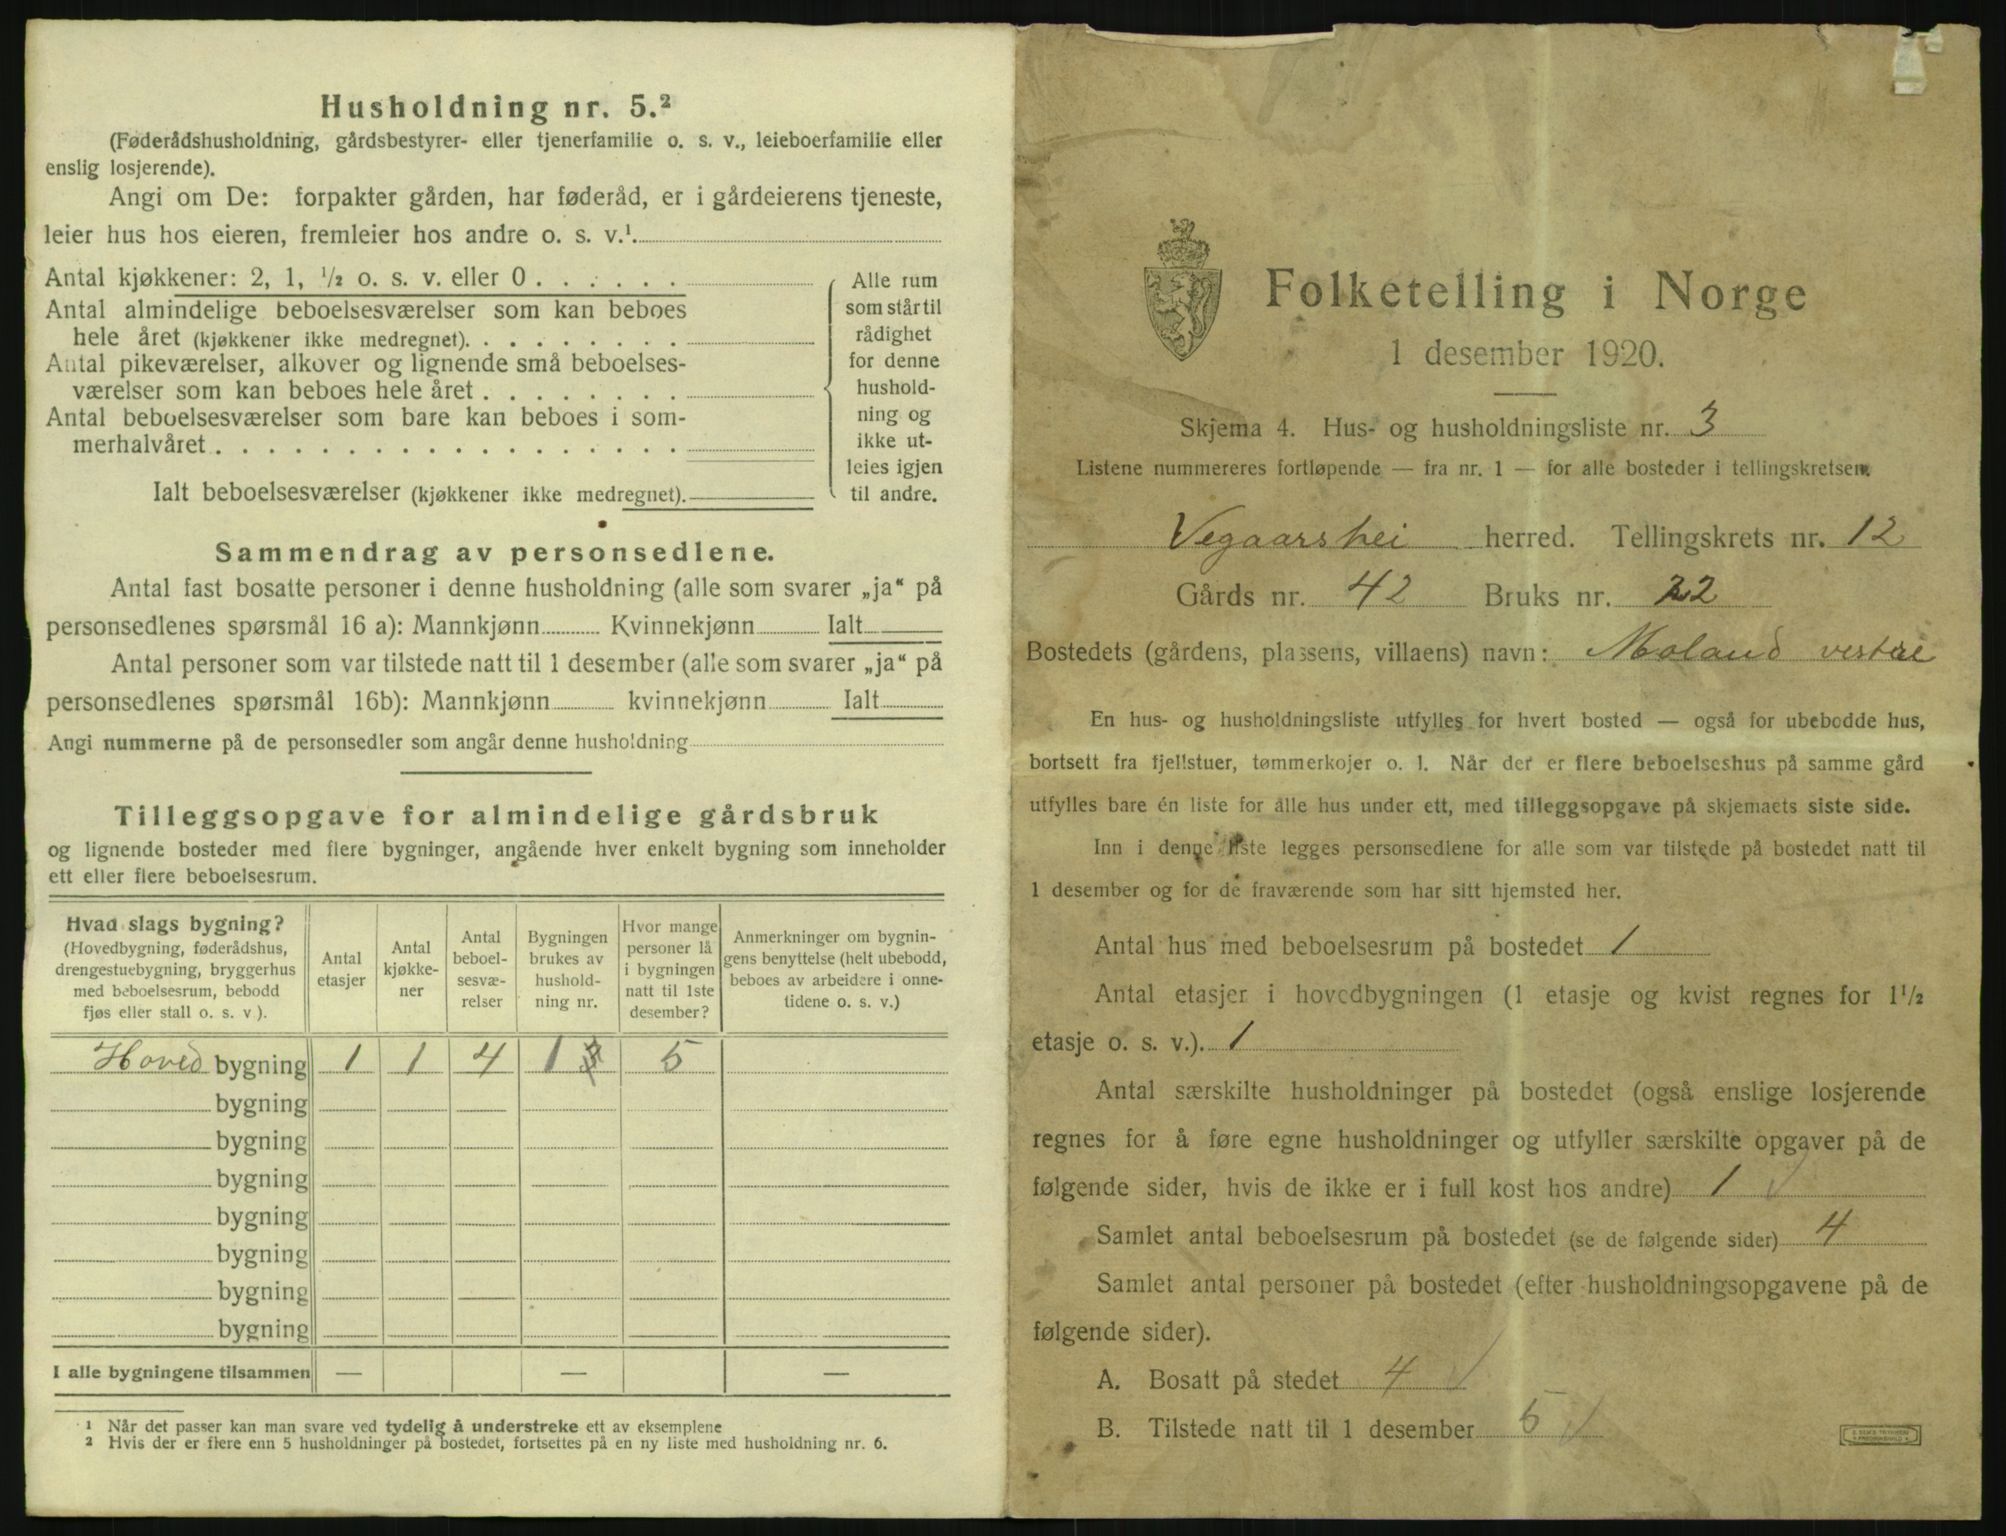 Husholdning nr. 5.²
(Føderådshusholdning, gårdsbestyrer- eller tjenerfamilie o. s. v., leieboerfamilie eller
enslig losjerende).
Angi om De: forpakter gården, har føderåd, er i gårdeierens tjeneste,
leier hus hos eieren, fremleier hos andre o. s. v.¹
Antal kjøkkener: 2, 1, ½ o. s. v. eller 0 . . . . . .
Antal almindelige beboelsesværelser som kan beboes
hele året (kjøkkener ikke medregnet). . . . . . . . .
Antal pikeværelser, alkover og lignende små beboelses-
værelser som kan beboes hele året . . . . . . . .
Antal beboelsesværelser som bare kan beboes i som-
merhalvåret . . . . . . . . . . . . . . . . . .
Ialt beboelsesværelser (kjøkkener ikke medregnet).
Alle rum
som står til
rådighet
for denne
hushold-
ning og
ikke ut-
leies igjen
til andre.
Sammendrag av personsedlene.
Antal fast bosatte personer i denne husholdning (alle som svarer „ja“ på
personsedlenes spørsmål 16 a): Mannkjønn Kvinnekjønn Ialt
Antal personer som var tilstede natt til 1 desember (alle som svarer „ja“ på
personsedlenes spørsmål 16b): Mannkjønn kvinnekjønn Ialt
Angi nummerne på de personsedler som angår denne husholdning
Tilleggsopgave for almindelige gårdsbruk
og lignende bosteder med flere bygninger, angående hver enkelt bygning som inneholder
ett eller flere beboelsesrum.
Hvad slags bygning?
(Hovedbygning, føderådshus,
drengestuebygning, bryggerhus
med beboelsesrum, bebodd
fjøs eller stall o. s. v ).
Antal
etasjer
Antal
kjøkke-
ner
Antal
beboel-
sesvæ-
relser
Bygningen
brukes av
hushold-
ning nr.
Hvor mange
personer lå
i bygningen
natt til 1ste
desember?
Anmerkninger om bygnin-
gens benyttelse (helt ubebodd,
beboes av arbeidere i onne-
tidene o. s. v.)
Hoved bygning 1 1 4 1 5
bygning
bygning
bygning
bygning
bygning
bygning
bygning
I alle bygningene tilsammen — — —
¹ Når det passer kan man svare ved tydelig å understreke ett av eksemplene
² Hvis der er flere enn 5 husholdninger på bostedet, fortsettes på en ny liste med husholdning nr. 6.
Folketelling i Norge
1 desember 1920.
Skjema 4. Hus- og husholdningsliste nr. 3
Listene nummereres fortløpende — fra nr. 1 — for alle bosteder i tellingskretsen.
Vegaarshei herred. Tellingskrets nr. 12
Gårds nr. 42 Bruks nr. 22
Bostedets (gårdens, plassens, villaens) navn: Moland vestre
En hus- og husholdningsliste utfylles for hvert bosted — også for ubebodde hus,
bortsett fra fjellstuer, tømmerkojer o. l. Når der er flere beboelseshus på samme gård
utfylles bare én liste for alle hus under ett, med tilleggsopgave på skjemaets siste side.
Inn i denne liste legges personsedlene for alle som var tilstede på bostedet natt til
1 desember og for de fraværende som har sitt hjemsted her.
Antal hus med beboelsesrum på bostedet 1
Antal etasjer i hovedbygningen (1 etasje og kvist regnes for 1½
etasje o. s. v.). 1
Antal særskilte husholdninger på bostedet (også enslige losjerende
regnes for å føre egne husholdninger og utfyller særskilte opgaver på de
følgende sider, hvis de ikke er i full kost hos andre) 1
Samlet antal beboelsesrum på bostedet (se de følgende sider) 4
Samlet antal personer på bostedet (efter husholdningsopgavene på de
følgende sider).
A. Bosatt på stedet 4
B. Tilstede natt til 1 desember 5